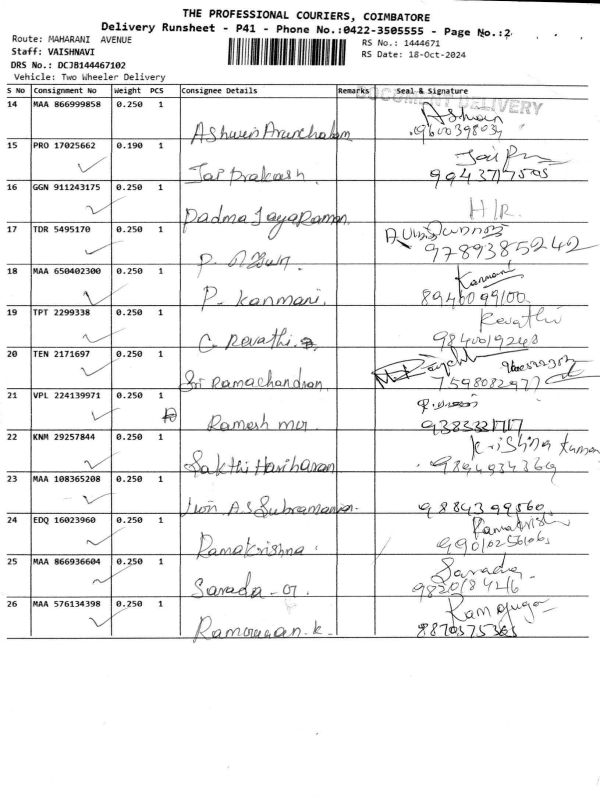 THE PROFESSIONAL COURIERS, COIMBATORE
Delivery Runsheet - P41 - Phone No.:0422-3505555 - Page No.:2
Route: MAHARANI AVENUE
RS No.: 1444671
Staff: VAISHNAVI
RS Date: 18-Oct-2024
DRS No.: DCJB144467102
Vehicle: Two Wheeler Delivery
S No Consignment No Weight PCS Consignee Details Remarks Seal & Signature
DOCUMENT DELIVERY
14 MAA 866999858 0.250 1 Ashwin Arunchalam Ashwin
9600398034
15 PRO 17025662 0.190 1 Jai Prakash. Jai
16 GGN 911243175 0.250 1 Padma Jayaraman H/R.
17 TDR 5495170 0.250 1 P.
9789385242
18 MAA 650402300 0.250 1 P. Kanmani. Kanmani
8940099100.
19 TPT 2299338 0.250 1 C. Revathi. Revathi
9840019248
20 TEN 2171697 0.250 1 Sri Ramachandran
7598082977
21 VPL 224139971 0.250 1 Ramesh
9383321717
22 KNM 29257844 0.250 1 Sakthi Hariharan Krishna Kumar
9894934369
23 MAA 108365208 0.250 1 A.S Subramanian
9884399560
24 EDQ 16023960 0.250 1 Ramakrishna. Ramakrish
25 MAA 866936604 0.250 1 Sarada - Sarada
26 MAA 576134398 0.250 1 K.
8870575365